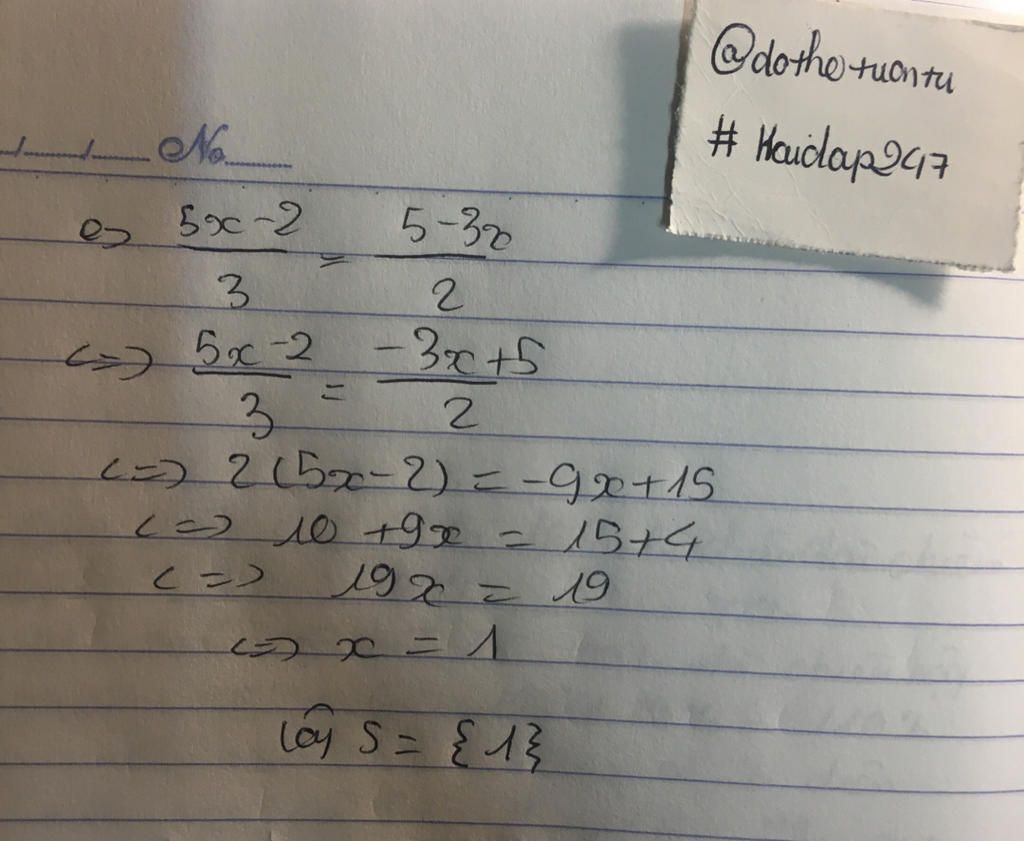 @dothetuantu
# Hoidap247
No
e> \frac{5x-2}{3} = \frac{5-3x}{2}
<=> \frac{5x-2}{3} = \frac{-3x+5}{2}
<=> 2(5x-2) = -9x+15
<=> 10 +9x = 15+4
<=> 19x = 19
<=> x = 1
S = {1}